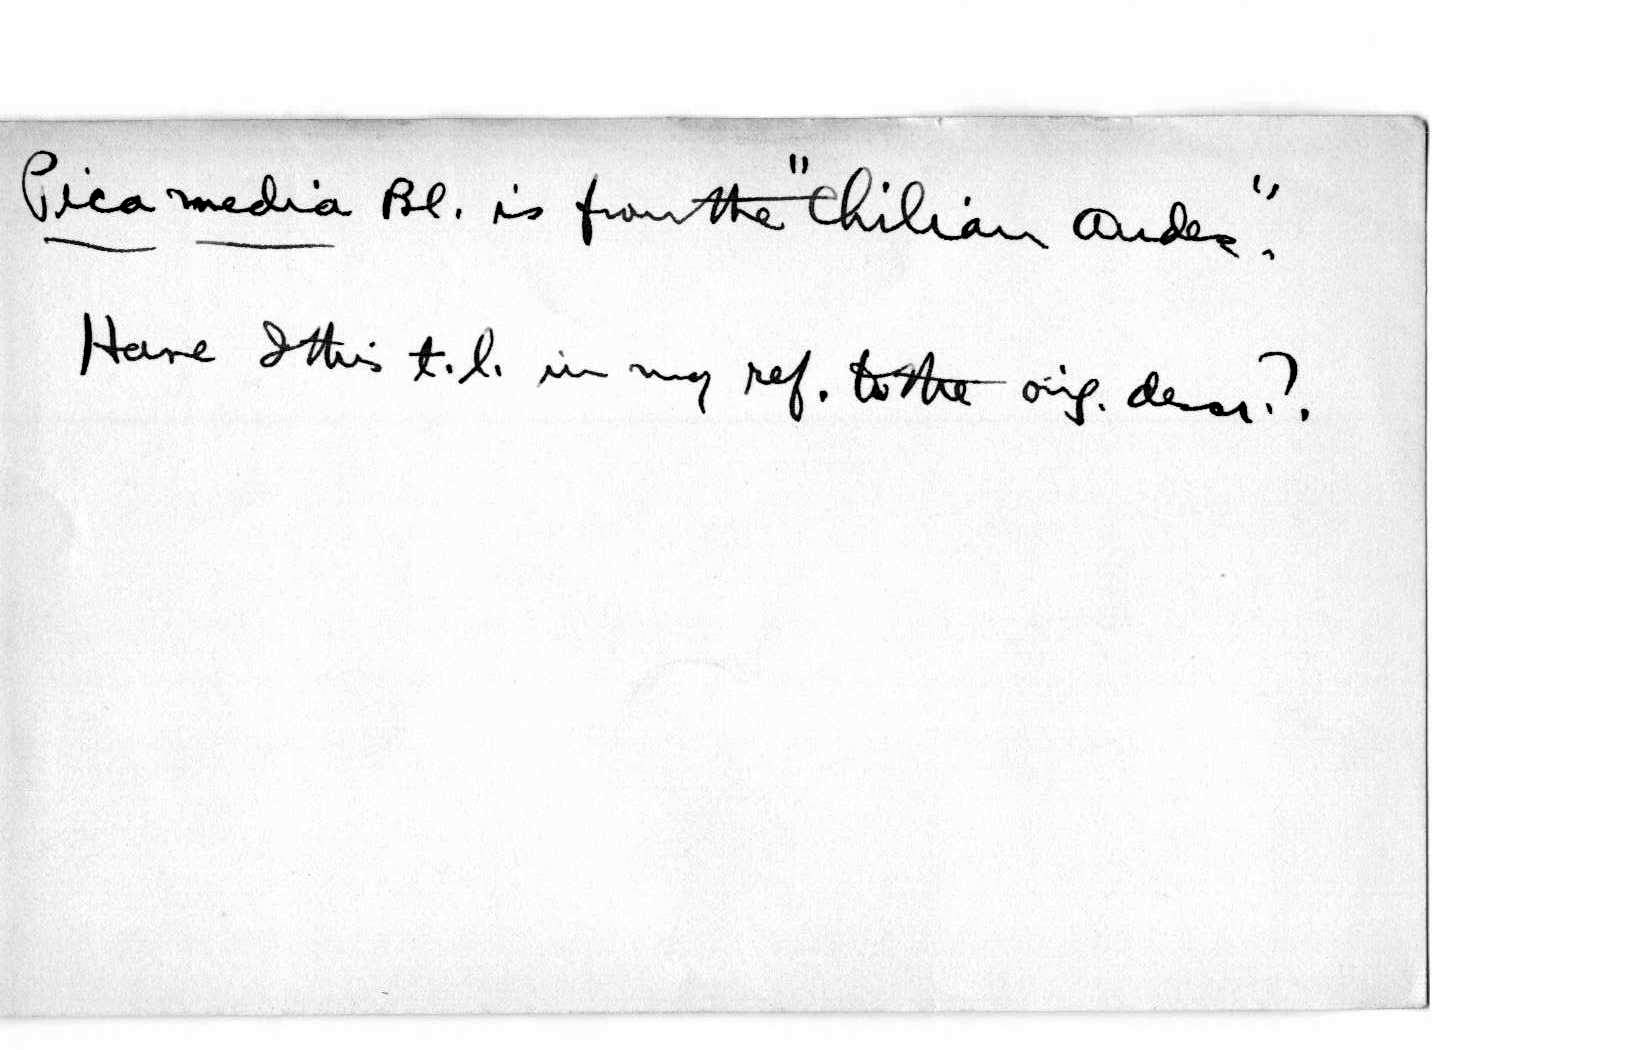 Pica media Bl. is from the "Chilian Andes".
Have I this t.l. in my ref. to the orig. descr.?.